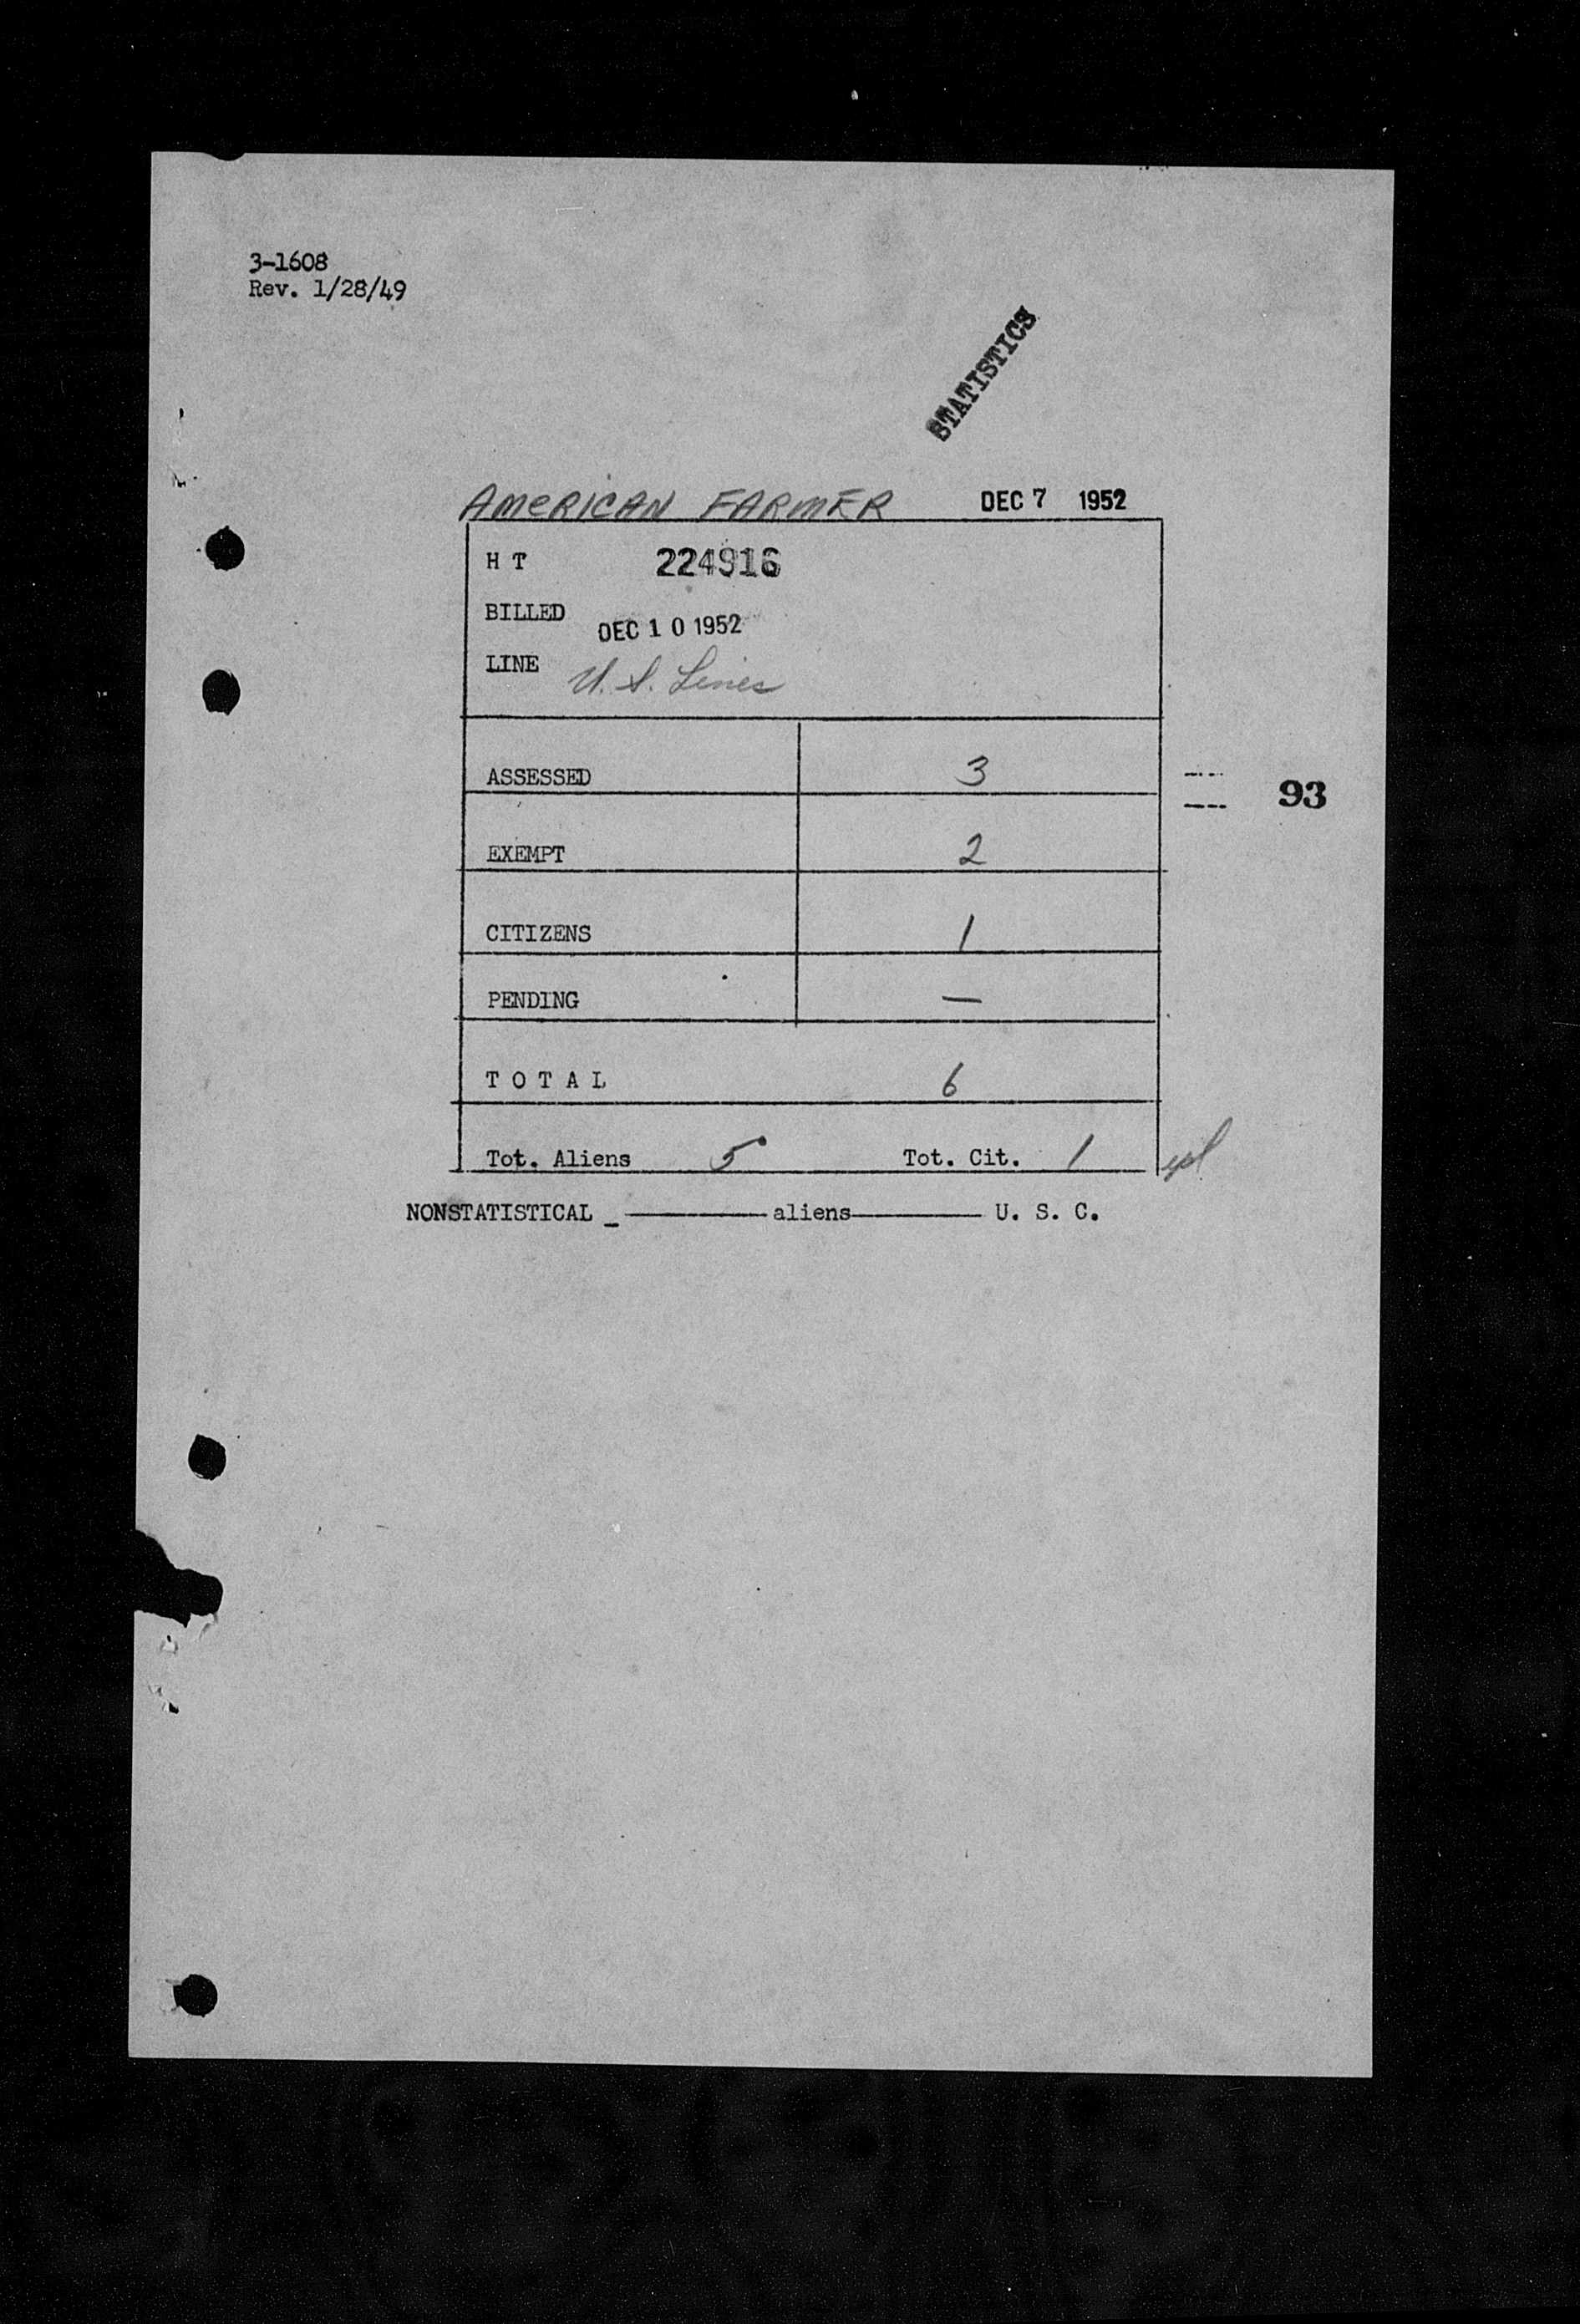 3-1608
Rev. 1/28/49
STATISTICS
AMERICAN FARMER DEC 7 1952
H T 224916
BILLED DEC 10 1952
LINE U. S. Lines
ASSESSED 3
93
EXEMPT 2
CITIZENS 1
PENDING —
T O T A L 6
Tot. Aliens 5 Tot. Cit. 1
NONSTATISTICAL _ ———— aliens ———— U. S. C.